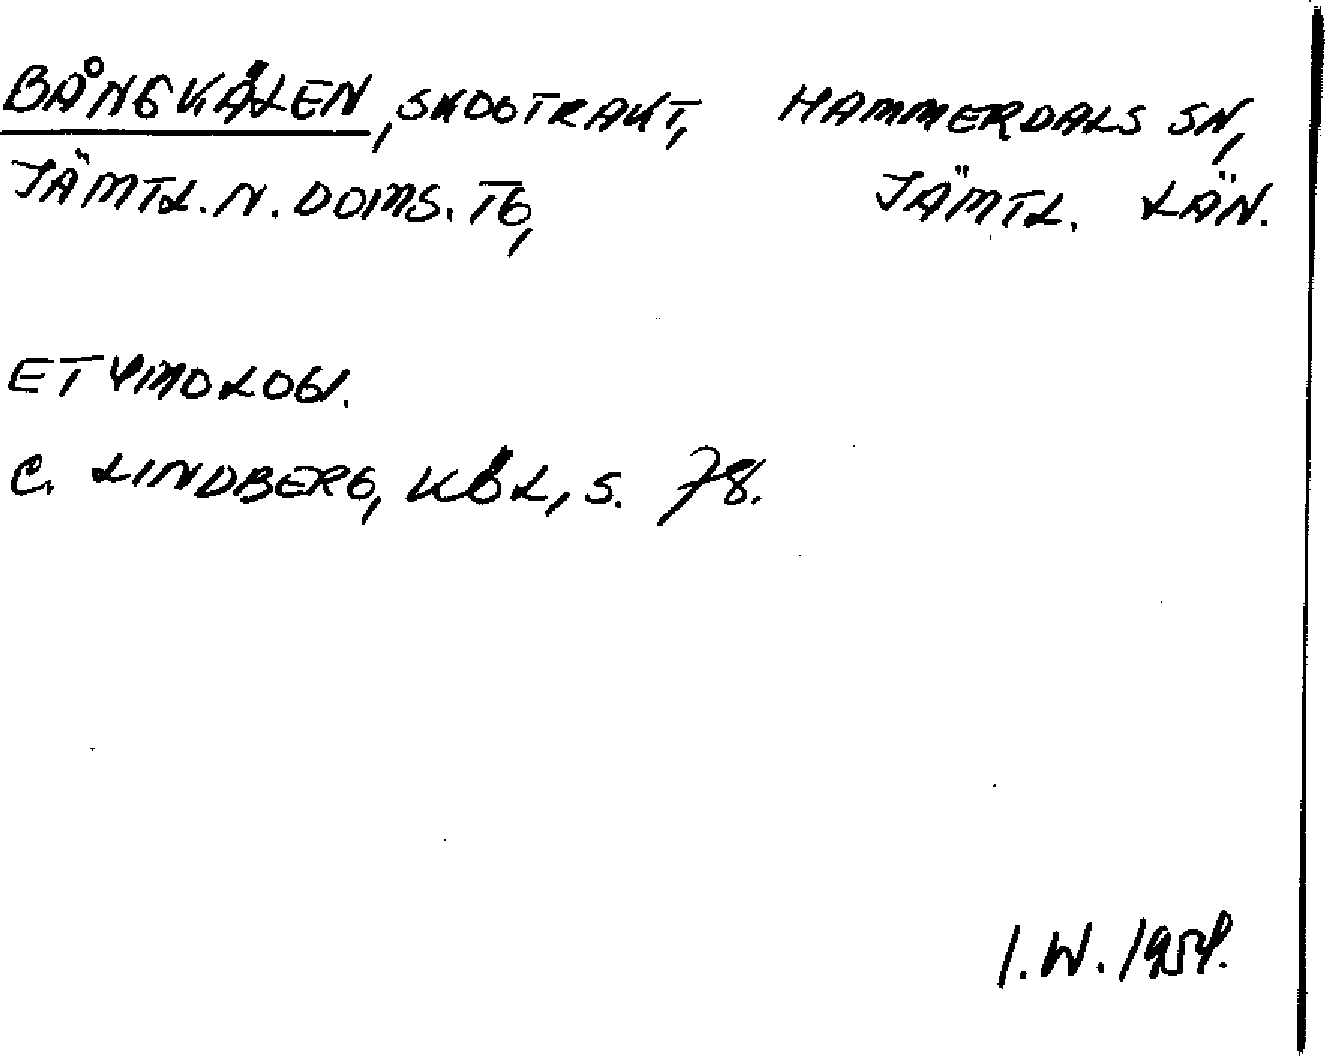 BÅNGKÄLEN, SKOGTRAKT, HAMMERDALS SN,
JÄMTL. N. DOMS. TG, JÄMTL. LÄN.
ETYMOLOGI.
C. LINDBERG, KÖL, S. 78.
I. W. 1954.